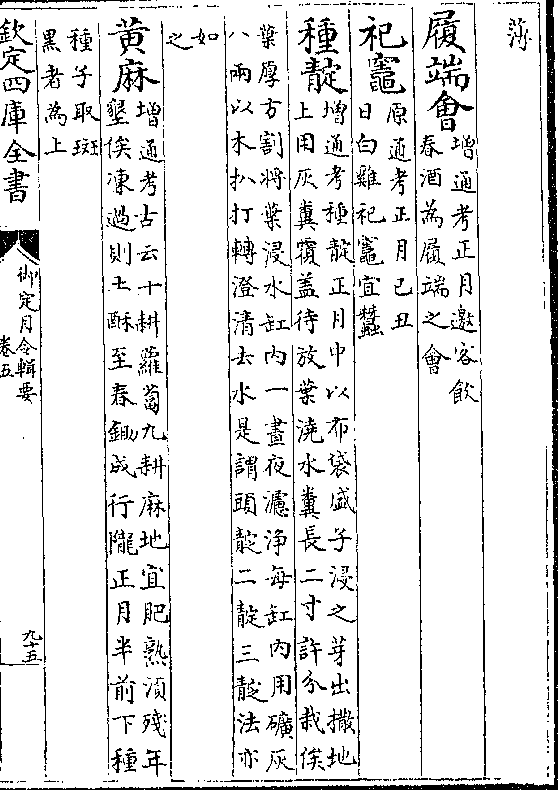 薄
履端會增通考正月邀客飲
春酒為履端之會
祀竈原通考正月己丑
日白雞祀竈宜蠶
種靛增通考種靛正月中以布袋盛子浸之芽出撒地
上用灰糞覆盖待放葉澆水糞長二寸許分栽俟
葉厚方割將葉浸水缸内一晝夜濾淨每缸内用礦灰
八兩以木扒打轉澄清去水是謂頭靛二靛三靛法亦
如
之
黄麻增通考古云十耕蘿蔔九耕麻地宜肥熟湏殘年
墾俟凍過則土酥至春鋤成行隴正月半前下種
種子取斑
黑者為上
欽定四庫全書
御定月令輯要
卷五
九十五